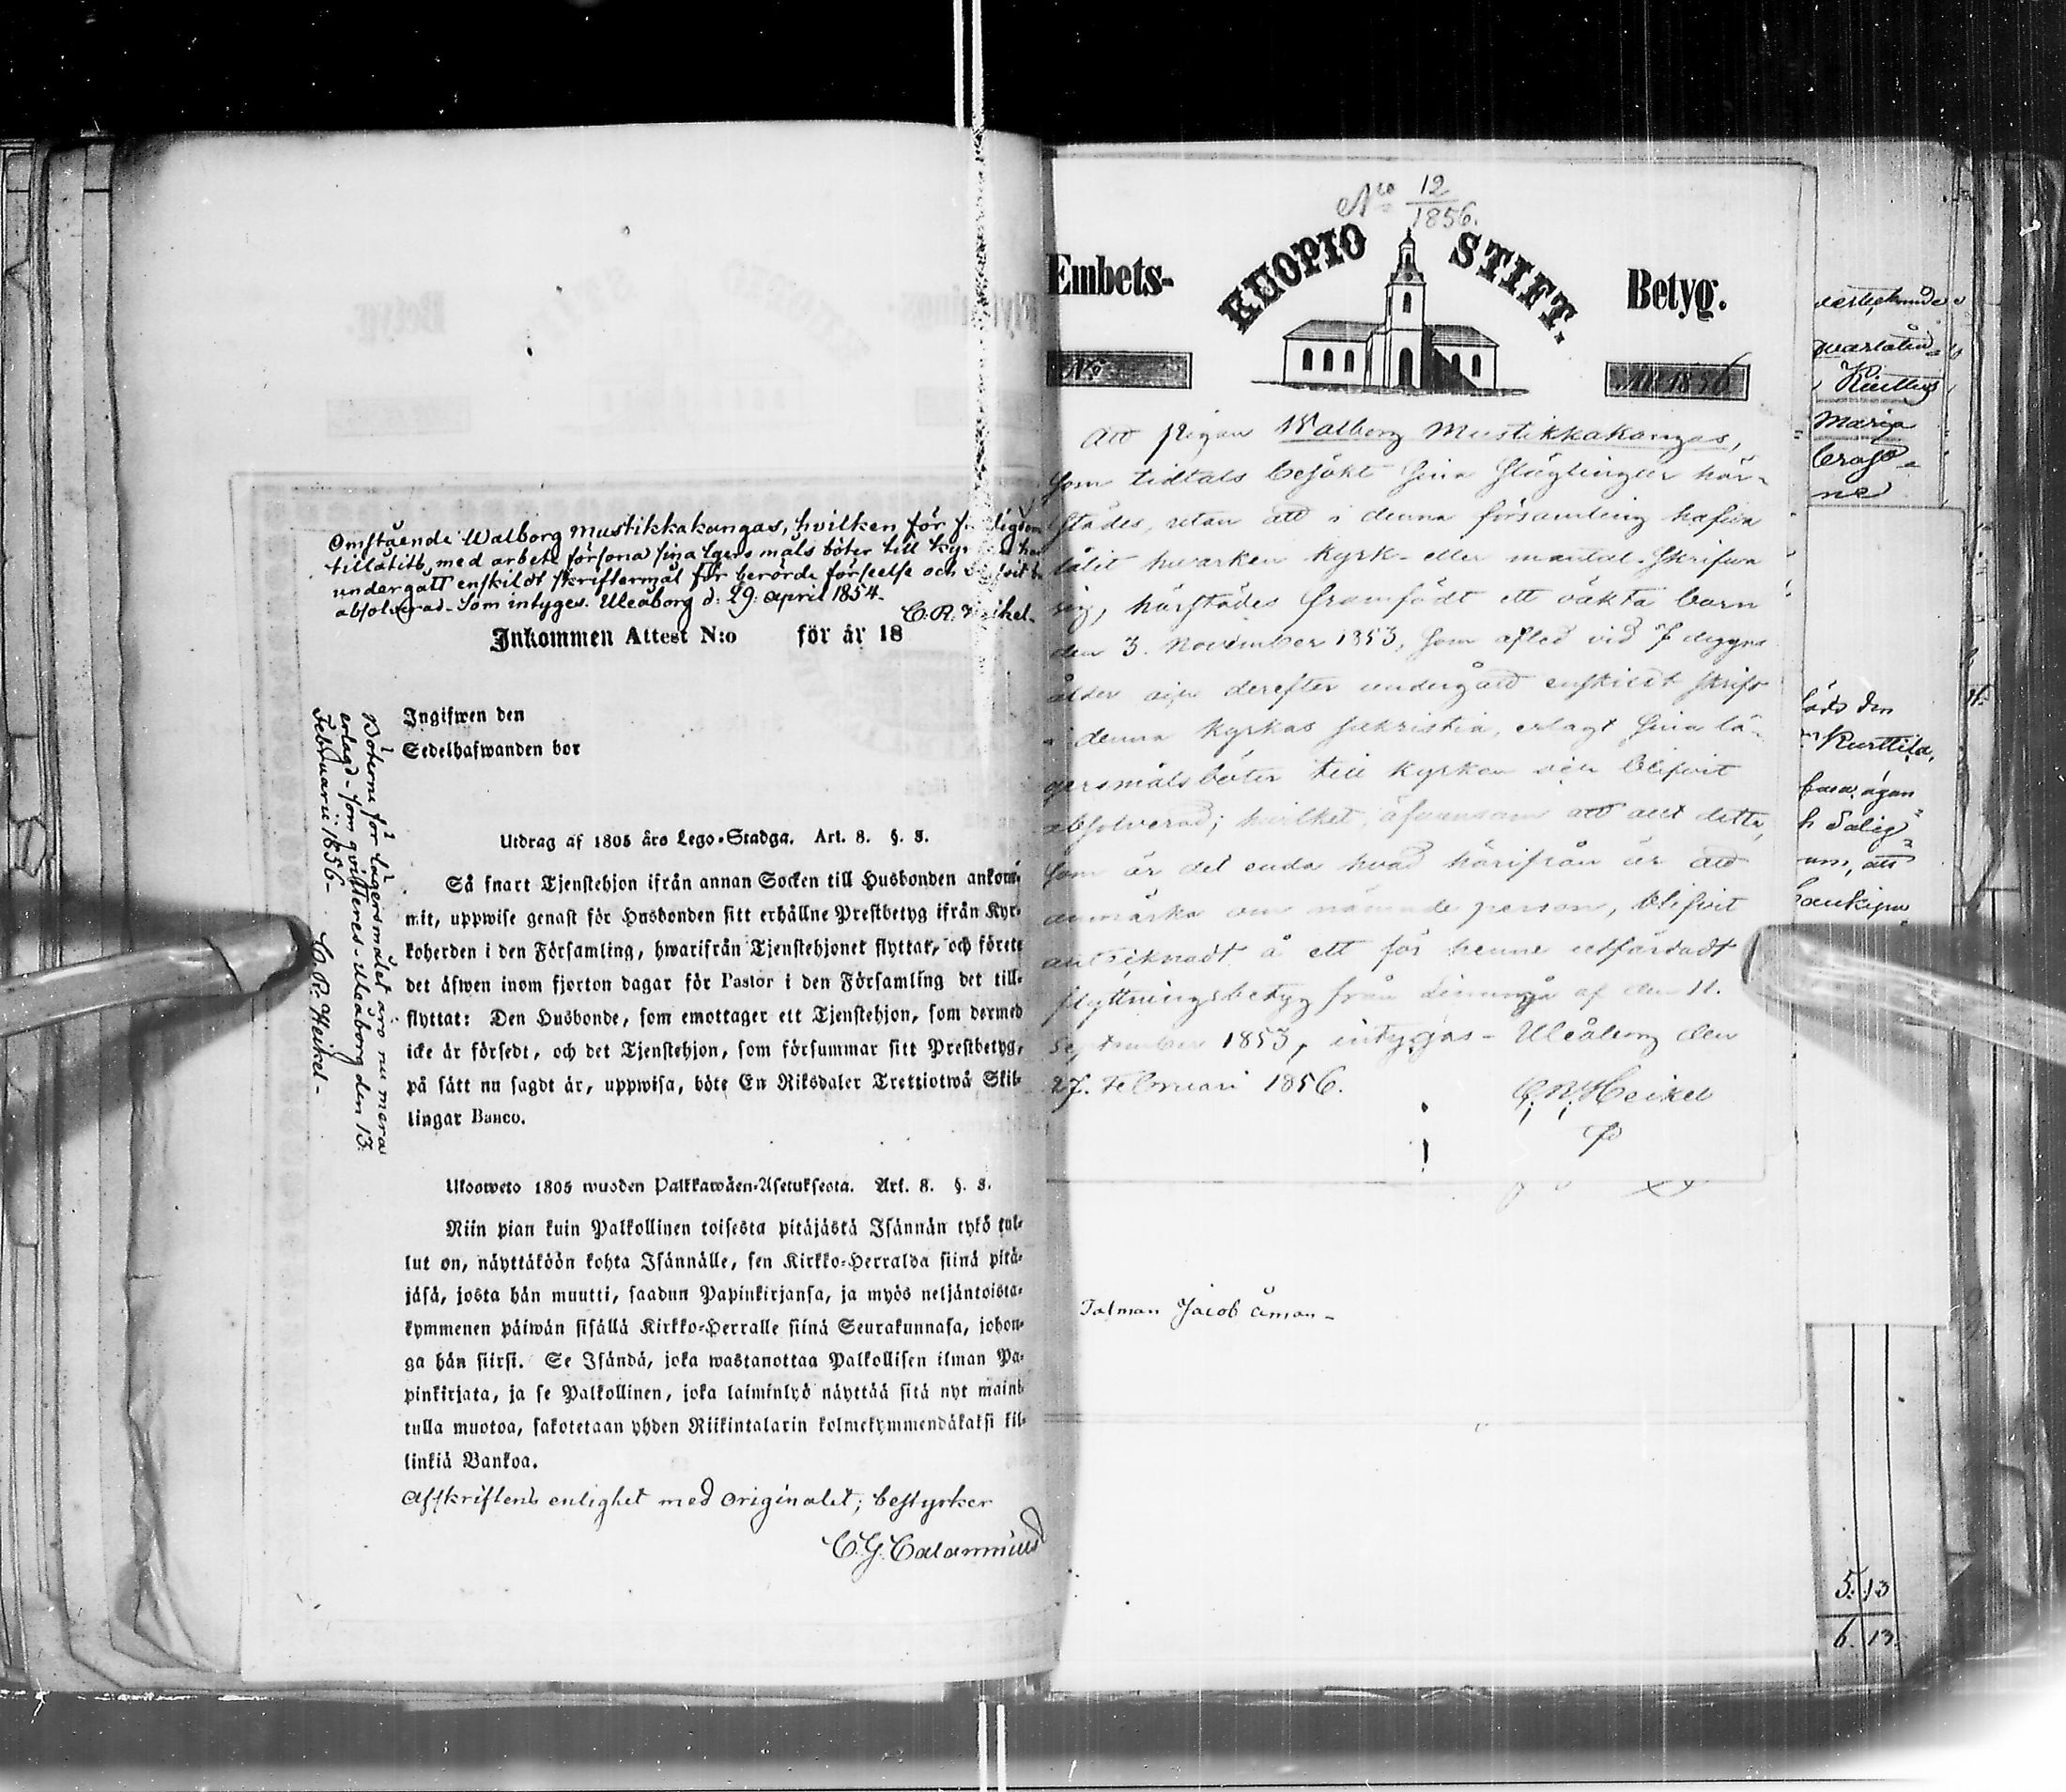 Omstående Walborg Mustikkakangas, hvilken för
tillåtits, med arbete försona sina lägersmåls böter till
undergått enskildt skriftermål för berörde förseelse och
absolverad. Som intyges. Uleåborg d. 29. april 1854.
C. R. Heikel.
Inkommen Attest N:o för år 18
Böterne för lägersmålet äro nu mera
erlagd – som qvitteres. Uleåborg den 13.
Februarii 1856 – C. R. Heikel –
Ingifwen den
Sedelhafwanden bor
Utdrag af 1805 års Lego-Stadga. Art. 8. §. 8.
Så snart Tjenstehjon ifrån annan Socken till Husbonden ankom-
mit, uppwise genast för Husbonden sitt erhållne Prestbetyg ifrån Kyr-
koherden i den Församling, hwarifrån Tjenstehjonet flyttat, och förete
det äfwen inom fjorton dagar för Pastor i den Församling det till-
flyttat: Den Husbonde, som emottager ett Tjenstehjon, som dermed
icke är försedt, och det Tjenstehjon, som försummar sitt Prestbetyg,
på sätt nu sagdt är, uppwisa, böte En Riksdaler Trettiotwå Skil-
lingar Banco.
Ulosweto 1805 wuoden Palkkawäen-Asetuksesta. Art. 8. §. 8.
Niin pian kuin Palkollinen toisesta pitäjästä Isännän tykö tul-
lut on, näyttäköön kohta Isännälle, sen Kirkko-Herralda siinä pitä-
jäsä, josta hän muutti, saadun Papinkirjansa, ja myös neljäntoista-
kymmenen päiwän sisällä Kirkko-Herralle siinä Seurakunnasa, johon-
ga hän siirsi. Se Isändä, joka wastanottaa Palkollisen ilman Pa-
pinkirjata, ja se Palkollinen, joka laiminlyö näyttää sitä nyt mainit-
tulla muotoa, sakotetaan yhden Riikintalarin kolmekymmendäkaksi kil-
linkiä Bankoa.
Afskriftens enlighet med originalet; bestyrker
C. G. Calamnius
No 12
1856.
Embets- KUOPIO STIFT. Betyg.
No År 1856
Att Pigan Walborg Mustikkakangas,
som tidtals besökt sina slägtingar här-
städes, utan att i denna församling hafva
låtit hwarken kyrk- eller mantal-skrifva
sig, härstädes framfödt ett oäkta barn
den 3. November 1853, som afled vid 7 dygns
ålder och derefter undergått enskildt skrift
i denna kyrkas sakristia, erlagt sina lä-
gersmålsböter till kyrkan och blifvit
absolverad; hvilket, äfvensom att allt detta,
som är det enda hvad härifrån är att
anmärka om nämnde person, blifvit
antecknadt å ett för henne utfärdadt
flyttningsbetyg från Limingo af den 11.
September 1853, intygas – Uleåborg den
27. Februari 1856. C. R. Heikel
Talman Jacob Åman –
Maria
Kurttila,
5. 13
6. 13.